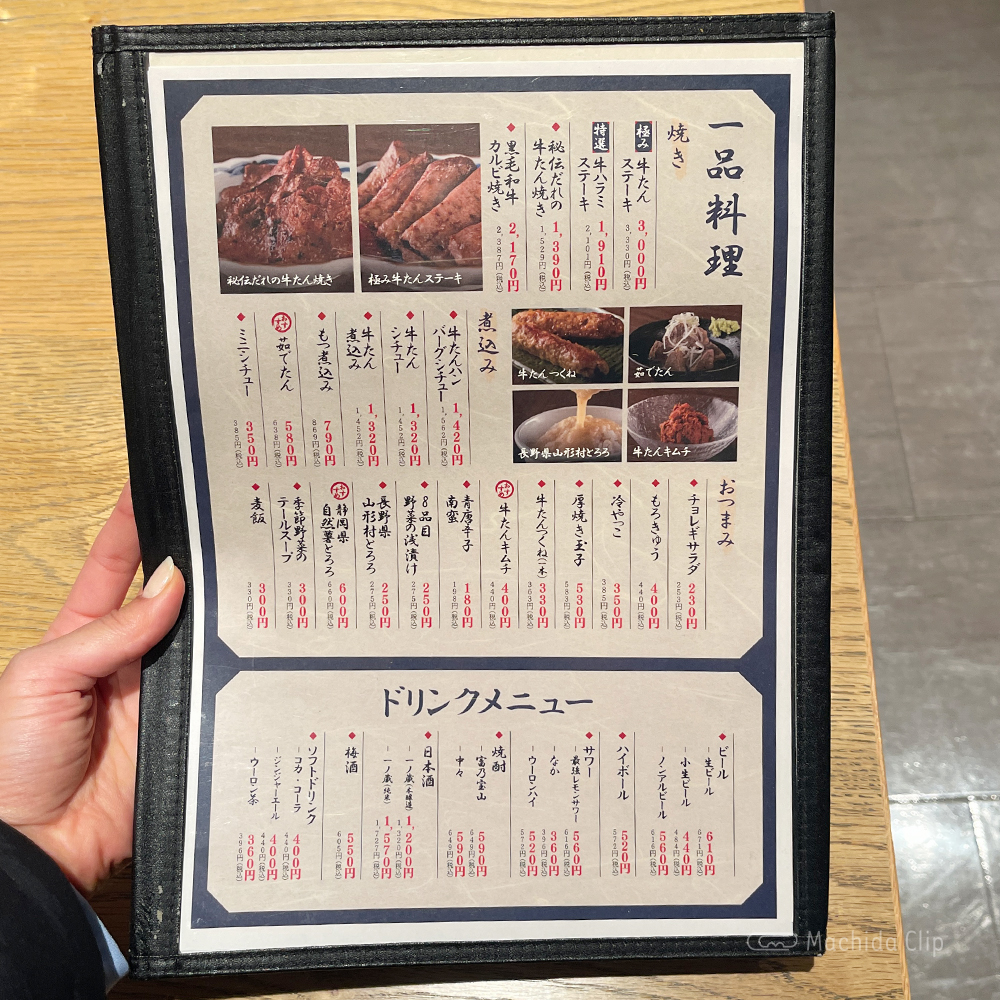 一品料理
焼き
極み 牛たんステーキ
3,000円
3,330円(税込)
特選 牛ハラミステーキ
1,910円
2,101円(税込)
秘伝だれの牛たん焼き
1,390円
1,529円(税込)
黒毛和牛カルビ焼き
2,170円
2,387円(税込)
極み牛たんステーキ
秘伝だれの牛たん焼き
牛たんつくね
茹でたん
長野県山形村とろろ
牛たんキムチ
煮込み
牛たんハンバーグシチュー
1,420円
1,562円(税込)
牛たんシチュー
1,320円
1,452円(税込)
牛たん煮込み
1,320円
1,452円(税込)
もつ煮込み
790円
869円(税込)
おすすめ
茹でたん
580円
638円(税込)
ミニシチュー
350円
385円(税込)
おつまみ
チョレギサラダ
230円
253円(税込)
もろきゅう
400円
440円(税込)
冷やっこ
350円
385円(税込)
厚焼き玉子
530円
583円(税込)
牛たんつくね(一本)
330円
363円(税込)
おすすめ
牛たんキムチ
400円
440円(税込)
青唐辛子南蛮
180円
198円(税込)
8品目野菜の浅漬け
250円
275円(税込)
長野県山形村とろろ
250円
275円(税込)
おすすめ
静岡県自然薯とろろ
600円
660円(税込)
季節野菜のテールスープ
300円
330円(税込)
麦飯
300円
330円(税込)
ドリンクメニュー
ビール
－生ビール
610円
671円(税込)
－小生ビール
440円
484円(税込)
－ノンアルビール
560円
616円(税込)
ハイボール
520円
572円(税込)
サワー
－最強レモンサワー
560円
616円(税込)
－なか
360円
396円(税込)
－ウーロンハイ
520円
572円(税込)
焼酎
－富乃宝山
590円
649円(税込)
－中々
590円
649円(税込)
日本酒
－一ノ蔵(本醸造)
1,200円
1,320円(税込)
－一ノ蔵(純米)
1,570円
1,727円(税込)
梅酒
550円
605円(税込)
ソフトドリンク
－コカ・コーラ
400円
440円(税込)
－ジンジャーエール
400円
440円(税込)
－ウーロン茶
360円
396円(税込)
Machida Clip